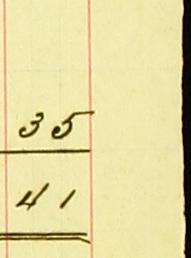 35
41